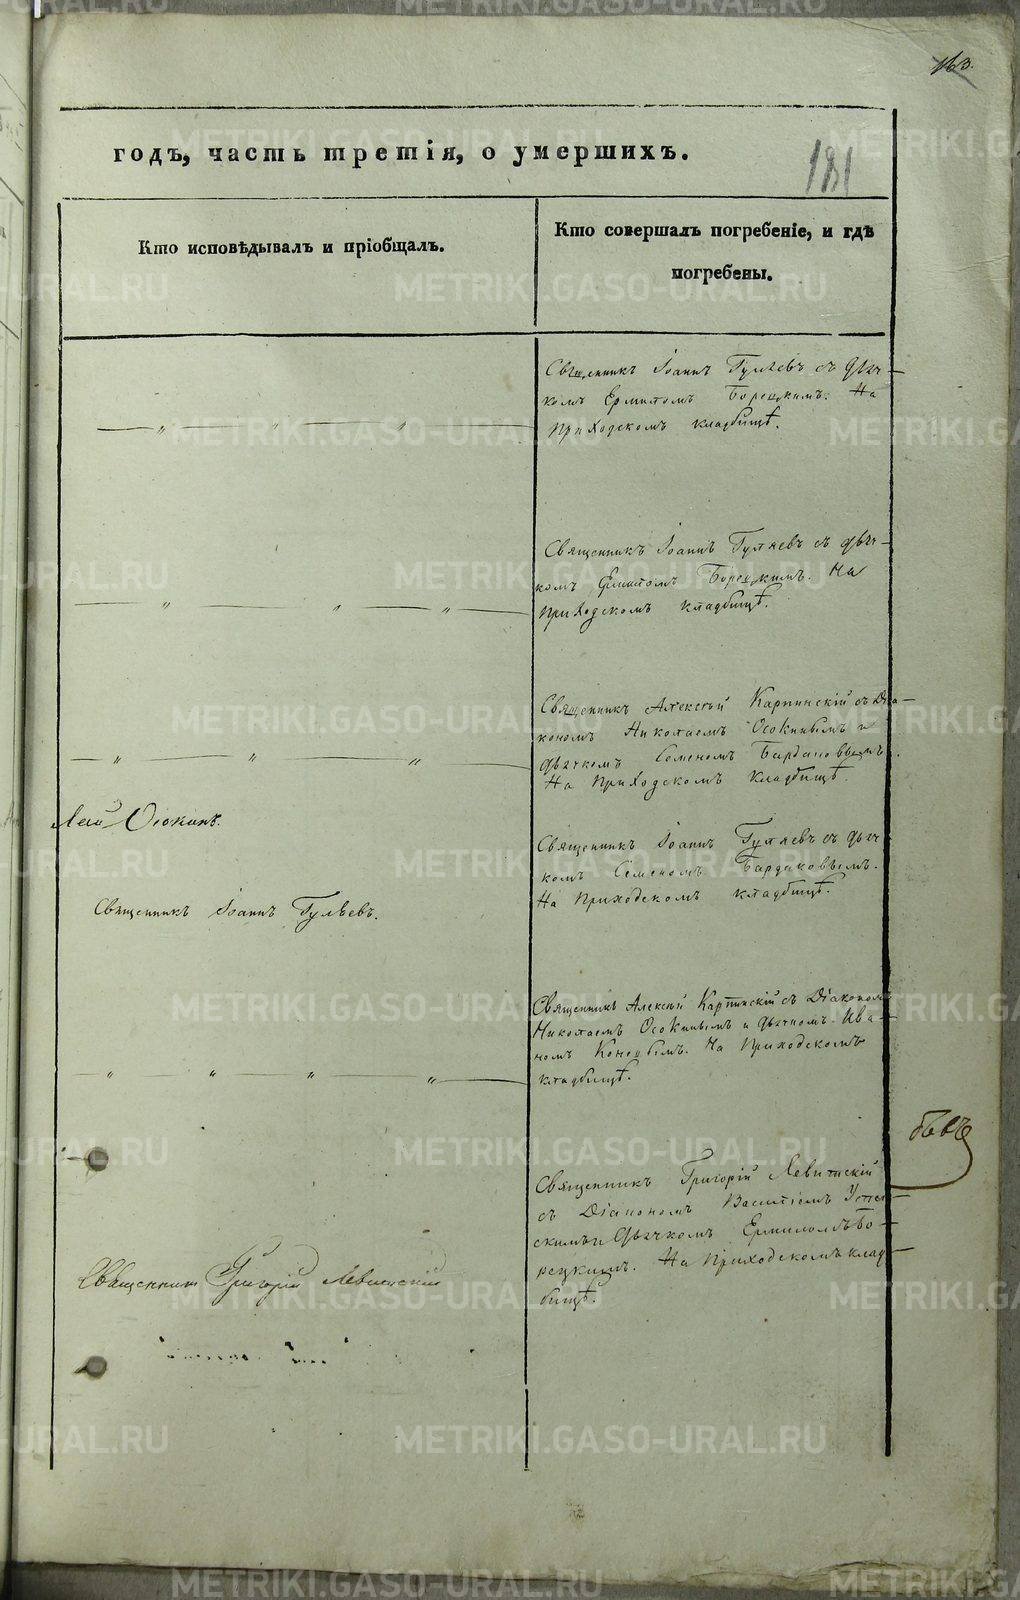 163.
годъ, часть третія, о умершихъ.
181
Кто исповѣдывалъ и пріобщалъ.
Кто совершалъ погребеніе, и гдѣ
погребены.
Священникъ Іоаннъ Гуляевъ съ дьяч-
комъ Ермиломъ Борецкимъ. На
Приходскомъ кладбищѣ.
Священникъ Іоаннъ Гуляевъ съ дьяч-
комъ Ермиломъ Борецкимъ. На
Приходскомъ кладбищѣ.
Священникъ Алексѣй Карпинскій съ Діа-
кономъ Николаемъ Осокинымъ и
дьячкомъ Семеномъ Бардаковымъ.
На Приходскомъ кладбищѣ.
Осокинъ.
Священникъ Іоаннъ Гуляевъ съ дьяч-
комъ Семеномъ Бардаковымъ.
На Приходскомъ кладбищѣ.
Священникъ Іоаннъ Гуляевъ.
Священникъ Алексѣй Карпинскій съ Діакономъ
Николаемъ Осокинымъ и дьячкомъ Ива-
номъ На Приходскомъ
кладбищѣ.
Священникъ Григорій Левитскій
съ Діакономъ Василіемъ
скимъ и Дьячкомъ Ермиломъ Бо-
рецкимъ. На Приходскомъ клад-
бищѣ.
Священникъ Григорій Левитскій
METRIKI.GASO-URAL.RU